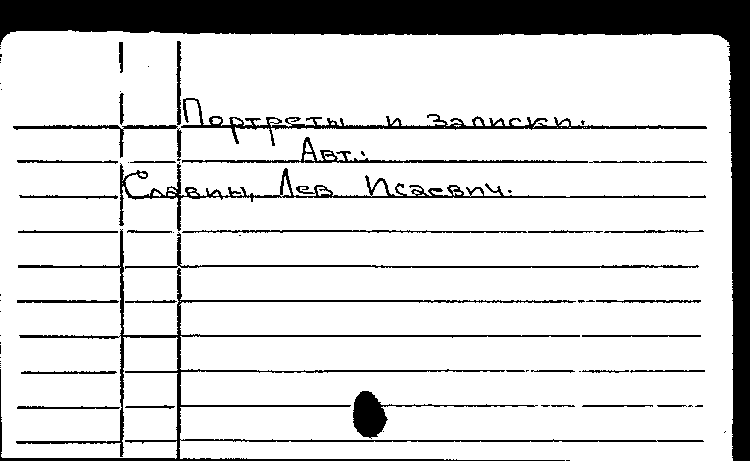 Портреты и записки.
Авт.:
Славин, Лев Исаевич.